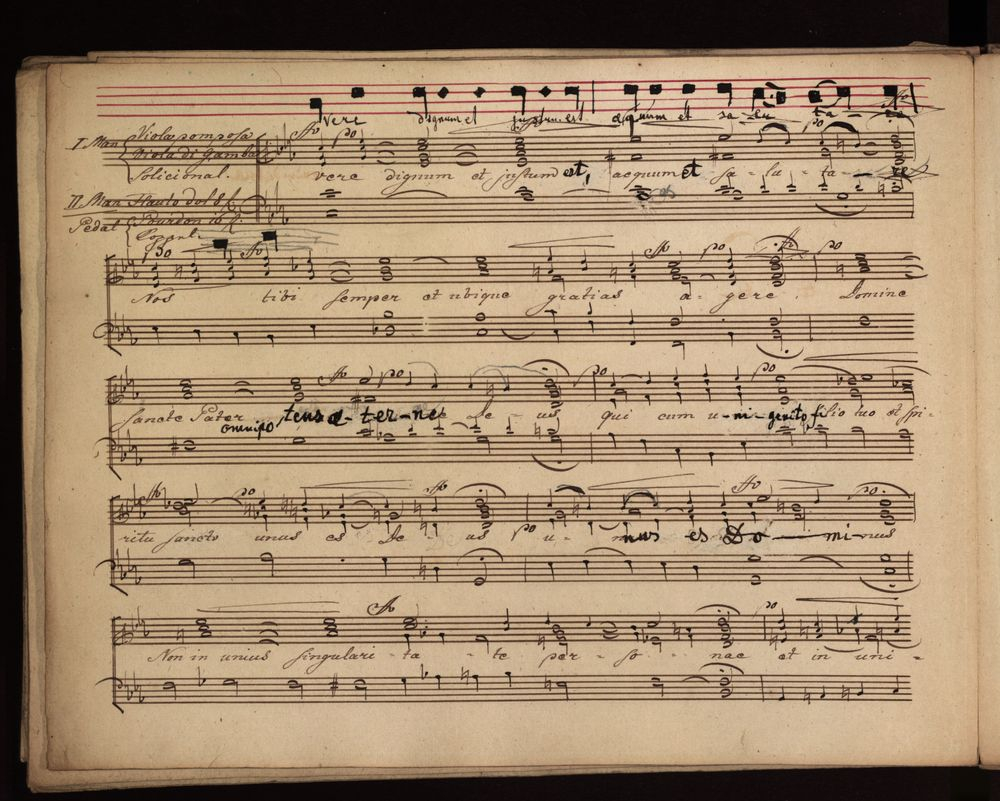 Vere dignum et justum est aequum et sa-lu-ta-re
I. Man Viola pomposa
Viola di Gamba
Solicional.
vere dignum et justum est, aequum et sa-lu-ta-re
II. Man Flauto dol 8 f.
Pedal Bourdon 16 f.
Nos tibi semper et ubique gratias a-gere. Domine
Sancte Pater omnipotens ae-ter-ne De-us qui cum u-ni-genito filio tuo et Spi-
ritu sancto unus es De-us u-nus es Do-mi-nus
Non in unius singulari-ta-te per-so-nae et in uni-